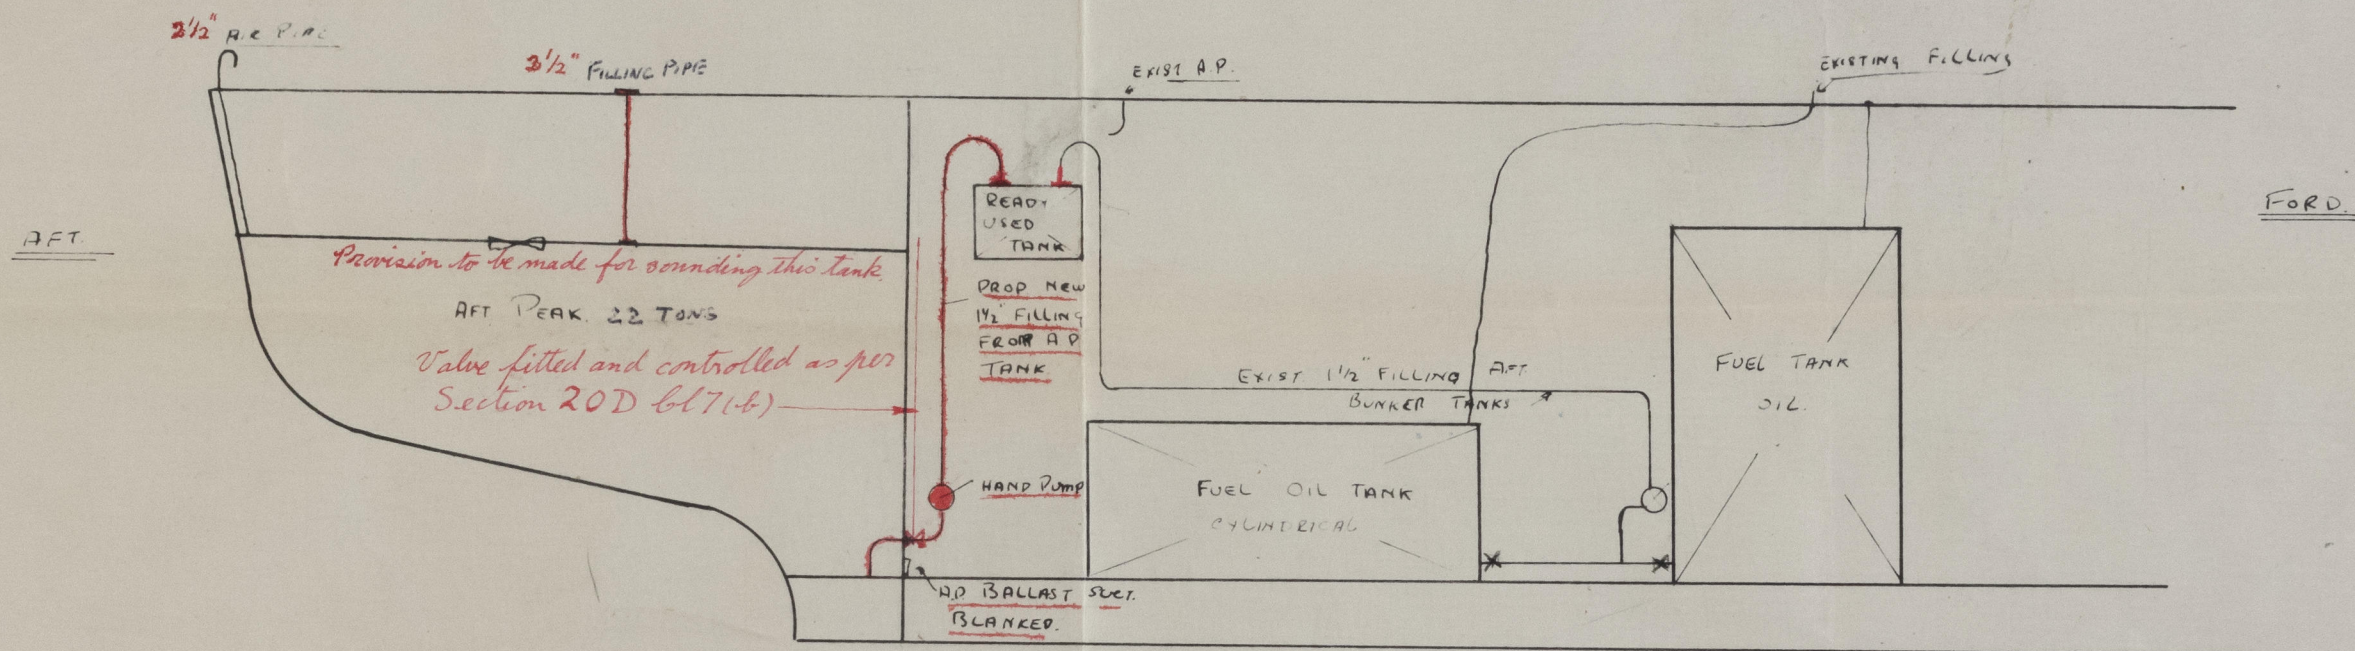 2½" AIR PIPE
2½" FILLING PIPE
EXIST A.P.
EXISTING FILLING
AFT.
FORD.
READY
USED
TANK
Provision to be made for sounding this tank.
AFT PEAK. 22 TONS
Valve fitted and controlled as per
Section 20D cl 7(b)
PROP NEW
1½" FILLING
FROM A P
TANK
EXIST 1½" FILLING AFT
BUNKER TANKS
FUEL TANK
OIL.
HAND PUMP
FUEL OIL TANK
CYLINDRICAL
A.P. BALLAST SUCT.
BLANKED.